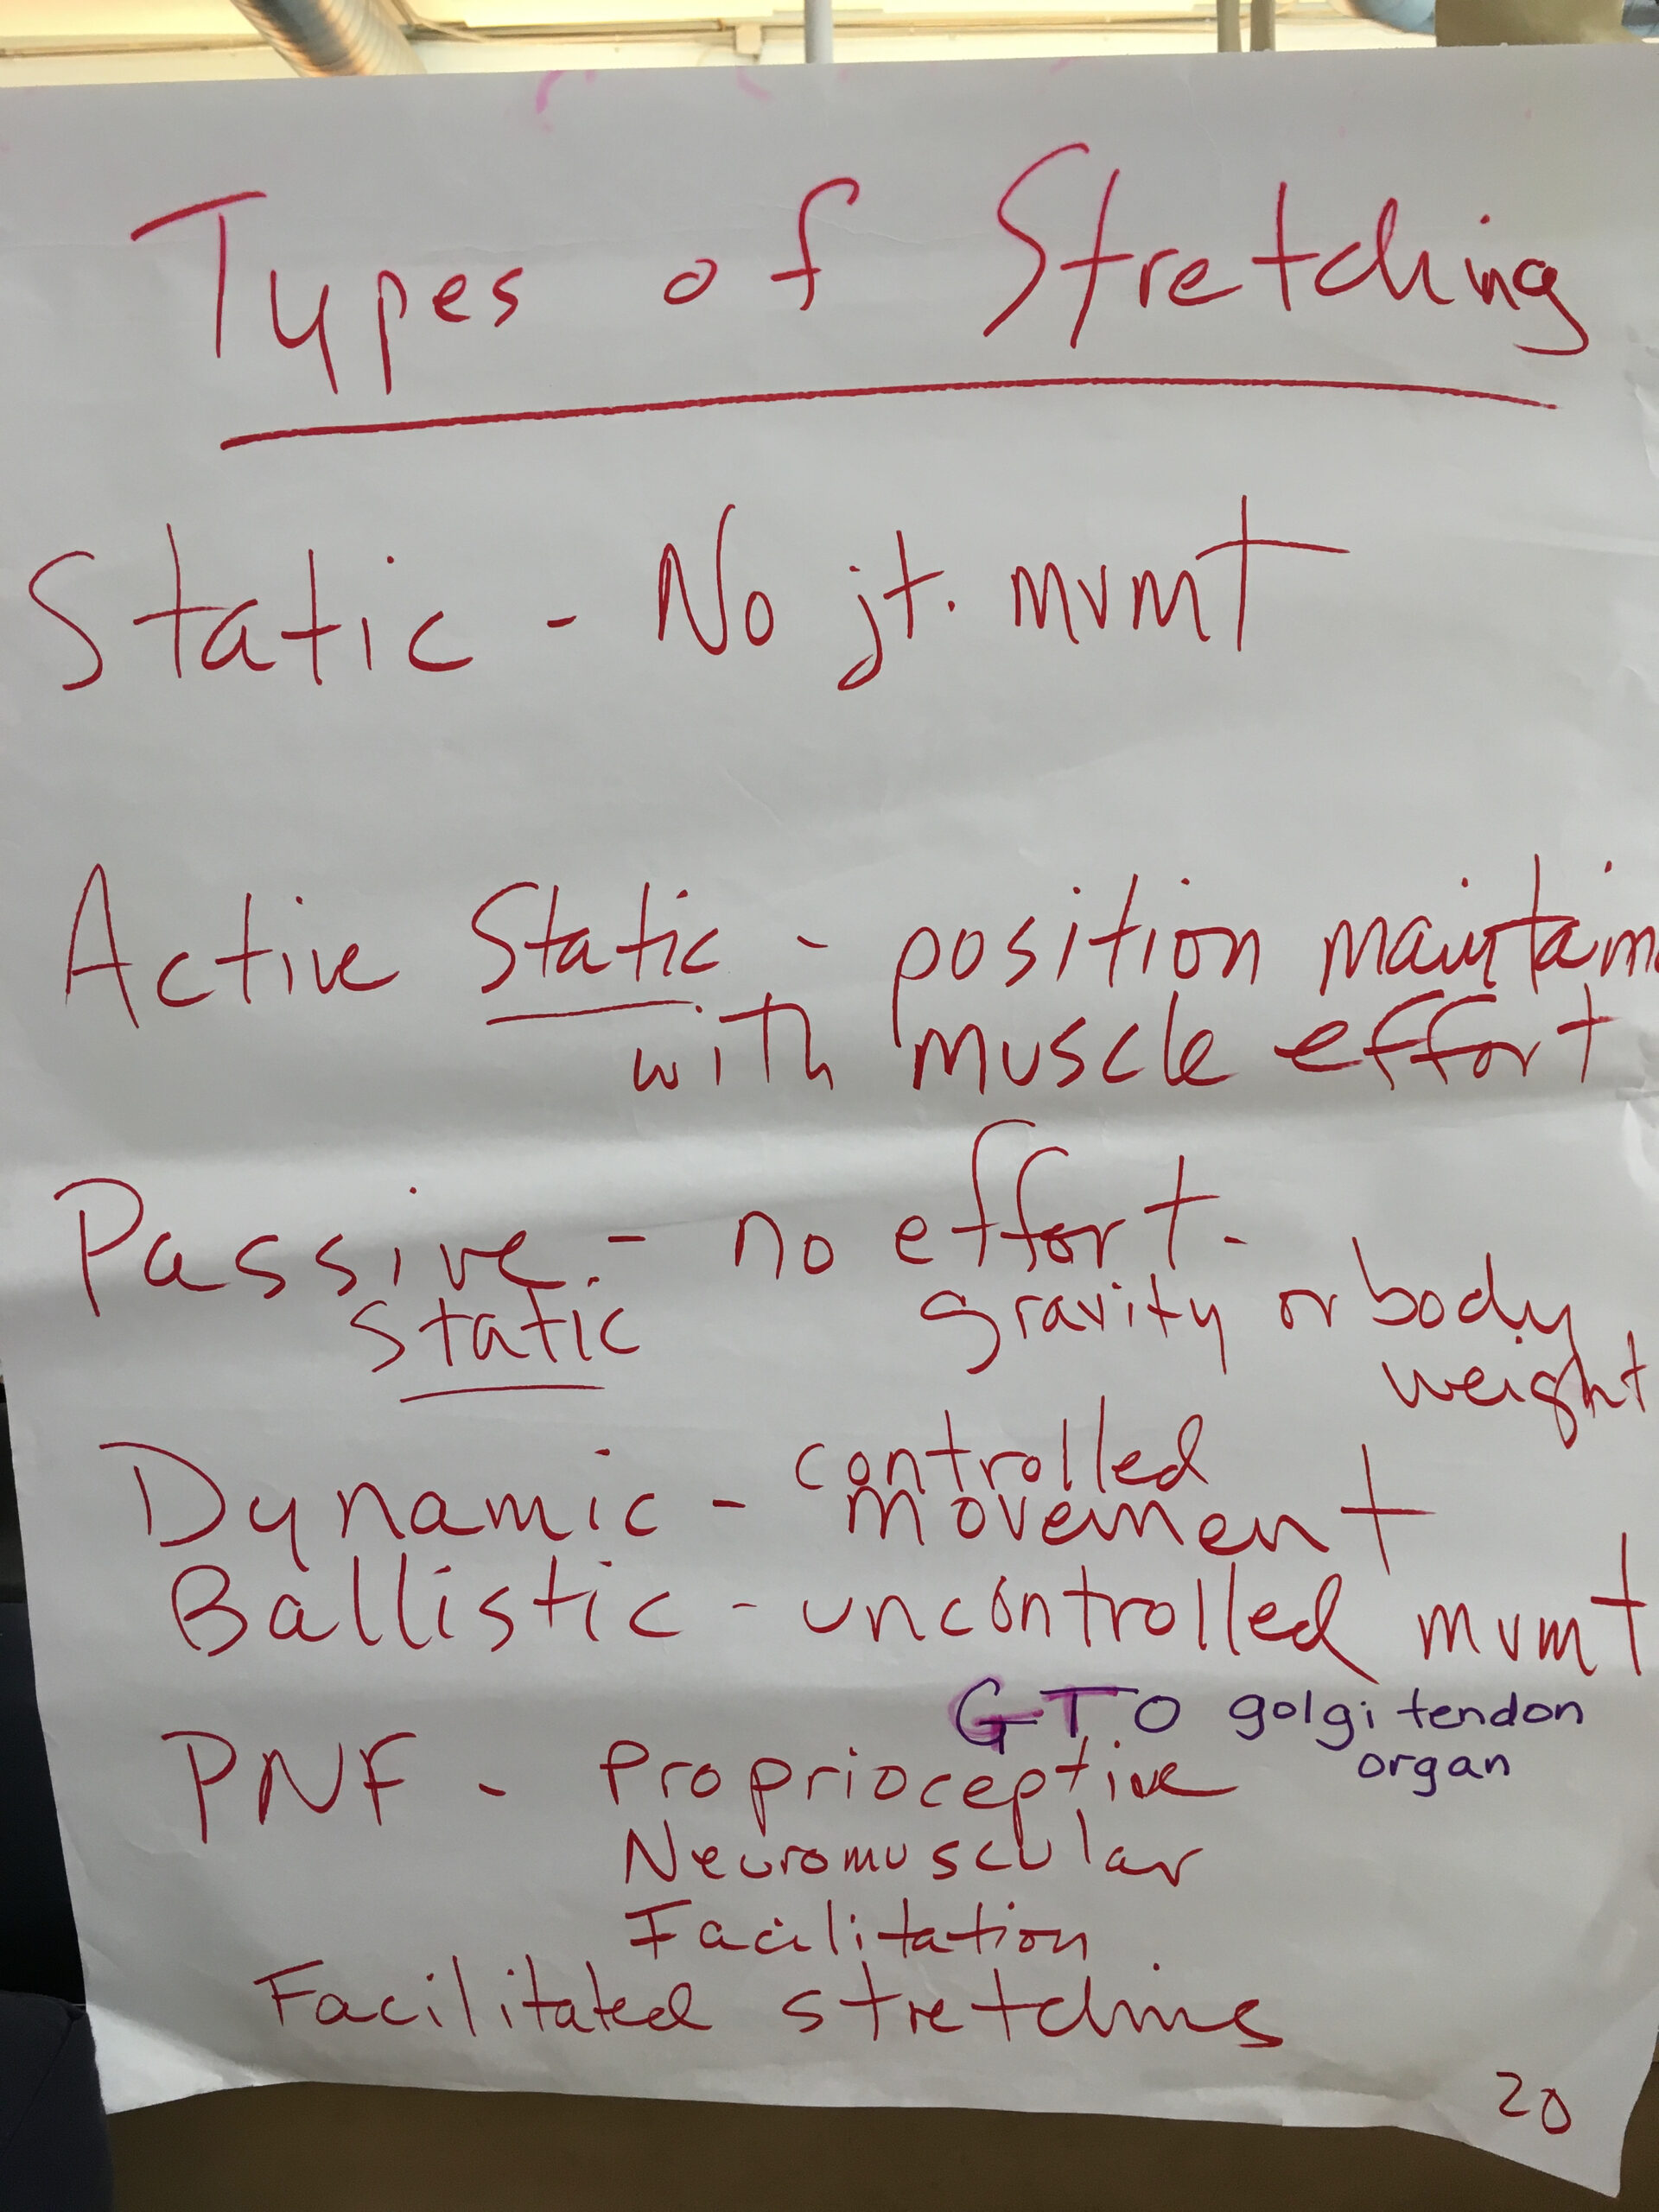 Types of Stretching
Static - No jt. mvmt
Active Static - position maintain
with muscle effort
Passive - no effort -
static gravity or body
weight
Dynamic - controlled
movement
Ballistic - uncontrolled mvmt
GTO golgi tendon
organ
PNF - Proprioceptive
Neuromuscular
Facilitation
Facilitated stretching
20